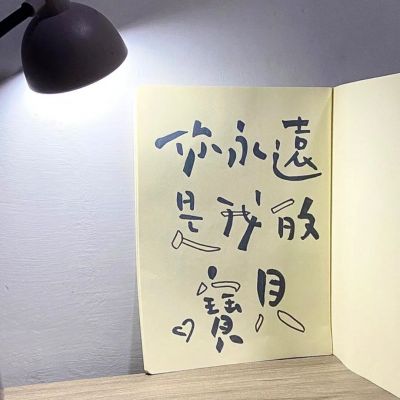 你永遠
是我的
寶貝